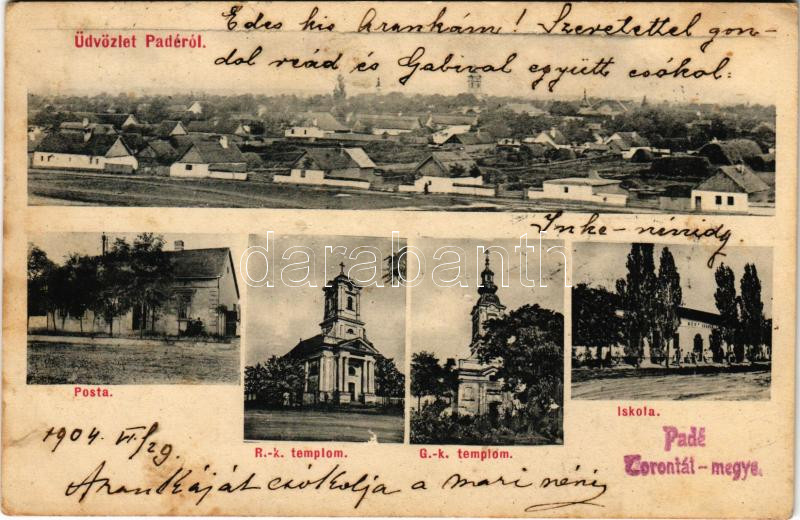 Üdvözlet Padéról.
Édes kis Arankám! Szeretettel gon-
dol reád és Gabival együtt csókol:
Inke-nénid
darabanth
Posta.
R.-k. templom.
G.-k. templom.
Iskola.
1904. VI/29.
Padé
Torontál-megye.
Arankáját csókolja a mari néni